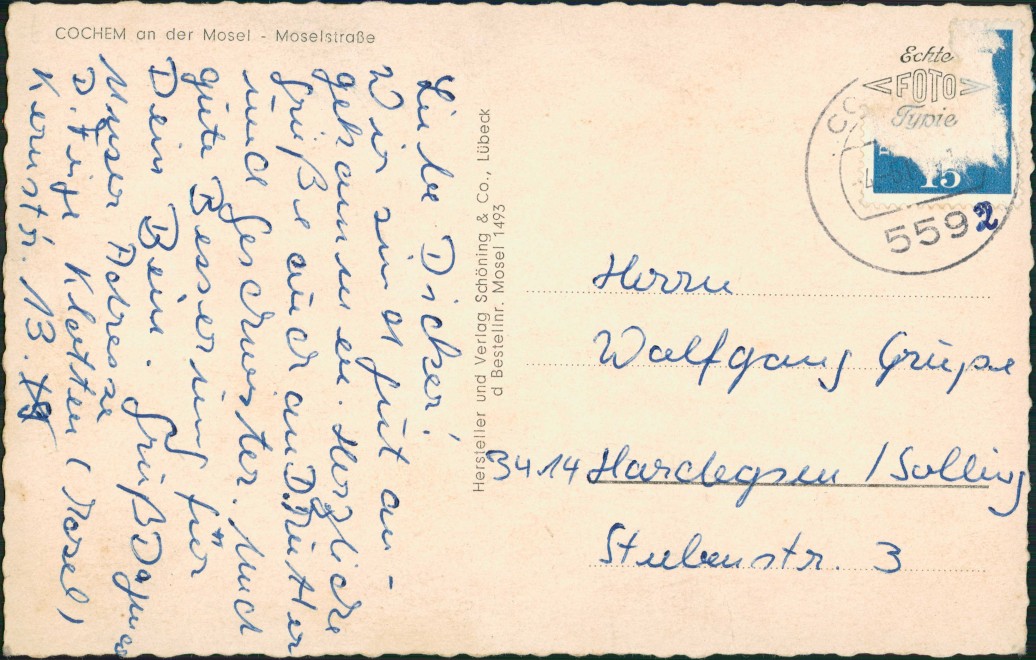 COCHEM an der Mosel - Moselstraße
Liebe Dicker!
Wir sind gut an-
gekommen. Herzliche
Grüße auch an D. Mutter
und Geschwister. Auch
gute Besserung für
Dein Bein. Gruß Dagmar
Unser Adresse
D. Klotten (Mosel)
Kernstr. 13.
Hersteller und Verlag Schöning & Co., Lübeck
d Bestellnr. Mosel 1493
Echte
FOTO
Typie
15
5592
Herrn
Wolfgang Grupe
3414 Hardegsen / Solling
Stubenstr. 3